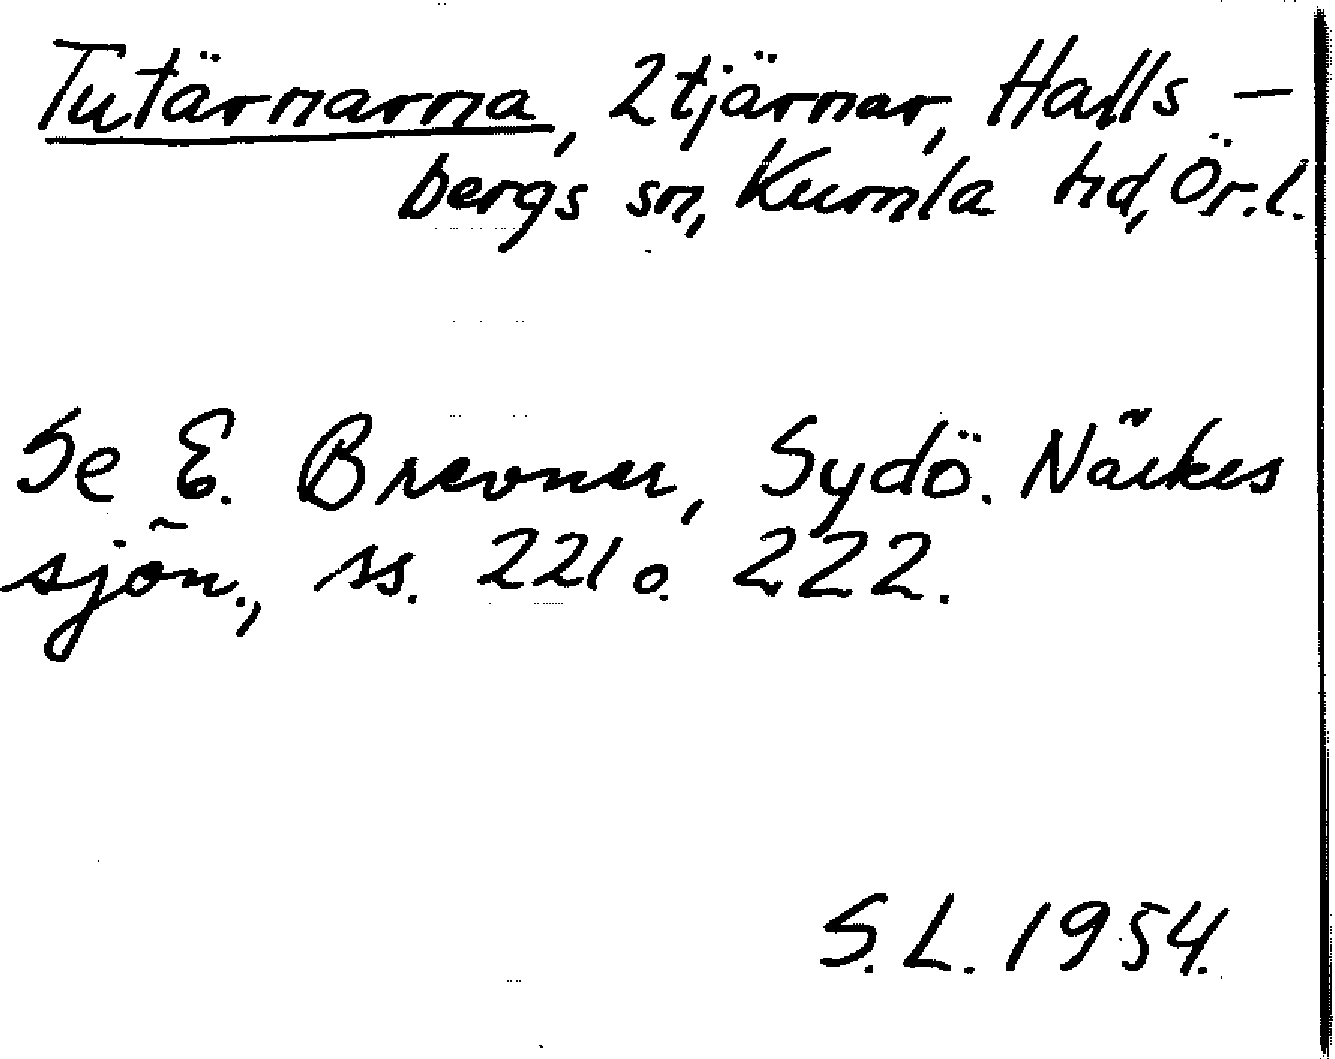 Tutärnarna, 2 tjärnar, Halls-
bergs sn, Kumla hd, Ör. l.
Se E. Brevner, Sydö. Närkes
sjön., ss. 221 o. 222.
S. L. 1954.